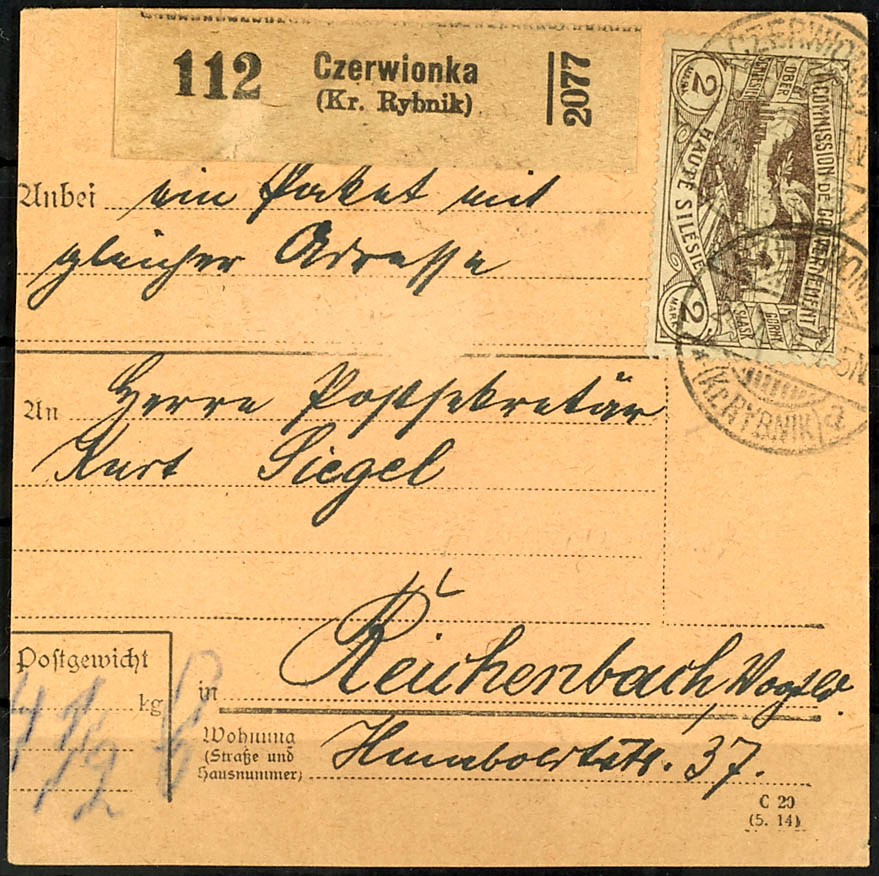 112 Czerwionka 2077
(Kr. Rybnik)
2 MARK OBER SCHLESIEN COMMISSION DE GOUVERNEMENT HAUTE SILÉSIE GÓRNY ŚLĄSK 2 MARK
CZERWIONKA
(Kr. RYBNIK) a
Anbei ein Paket mit
gleicher Adresse
An Herrn Postsekretär
Kurt Siegel
Postgewicht
4 1/2 kg
in Reichenbach, Vogtld.
Wohnung
(Straße und
Hausnummer) Humboldtstr. 37.
C 20
(5. 14)